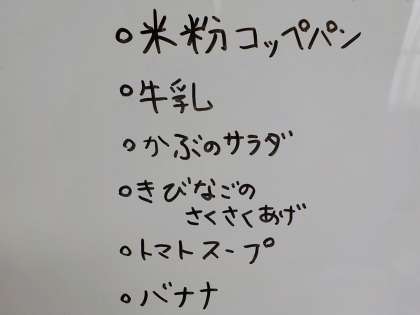 ○米粉コッペパン
○牛乳
○かぶのサラダ
○きびなごの
さくさくあげ
○トマトスープ
○バナナ